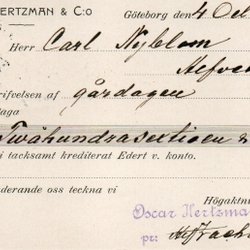 ERTZMAN & C:o Göteborg den 4 Oct
Herr Carl Nyblom
rifvelsen af gårdagen
aga
Twåhundrasextioen
i tacksamt krediterat Edert v. konto.
nderande oss teckna vi
Högaktn
Oscar Hertzma
pr: